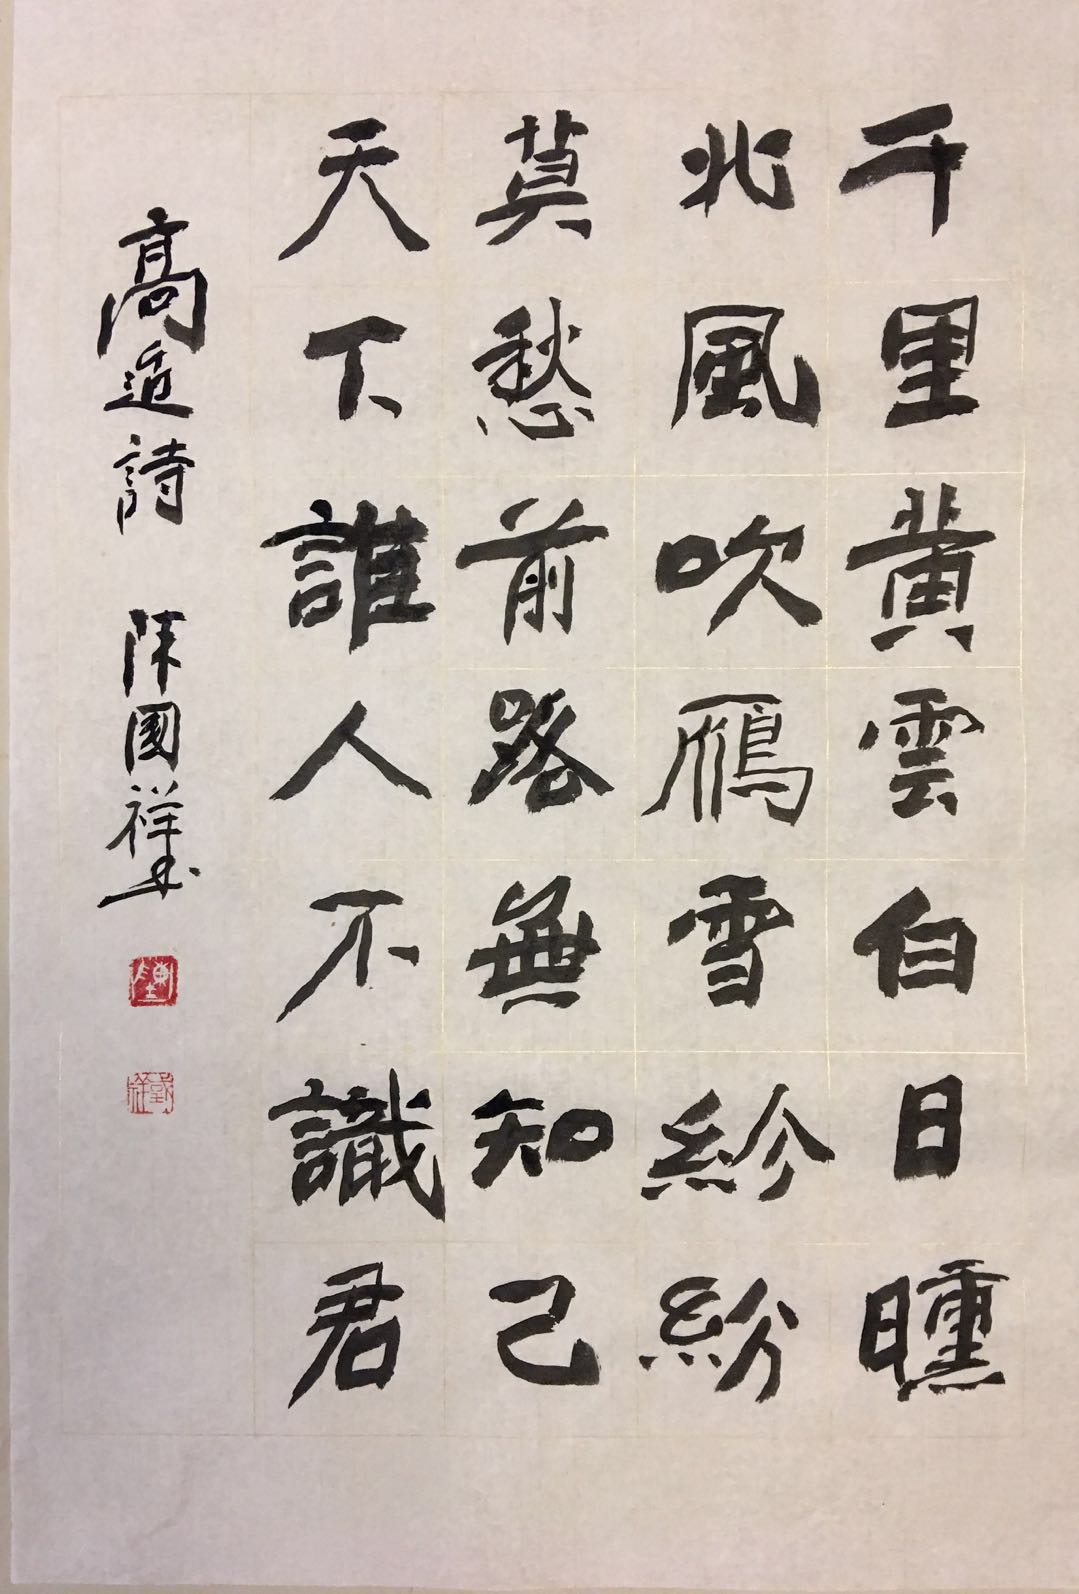 千里黃雲白日曛
北風吹鴈雪紛紛
莫愁前路無知己
天下誰人不識君
高適詩 陳國祥書